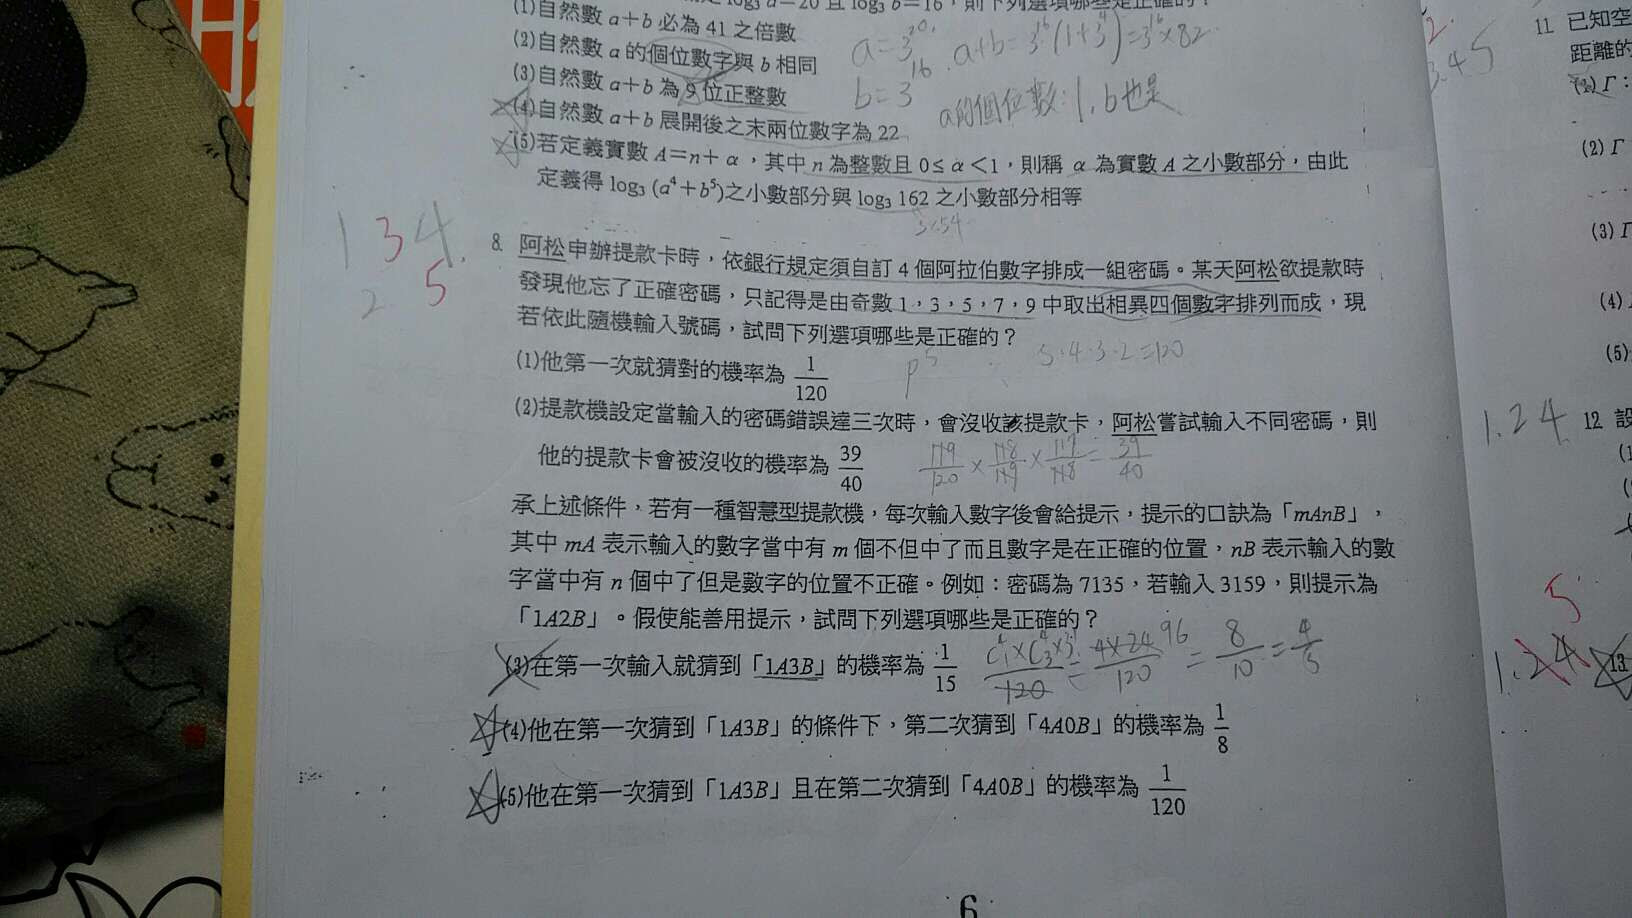 log₃ a=20 且 log₃ b=16,則下列選項哪些是正確的?
(1)自然數 a+b 必為 41 之倍數
(2)自然數 a 的個位數字與 b 相同
(3)自然數 a+b 為 9 位正整數
(4)自然數 a+b 展開後之末兩位數字為 22
(5)若定義實數 A=n+α,其中 n 為整數且 0≤α<1,則稱 α 為實數 A 之小數部分,由此
定義得 log₃ (a⁴+b⁵)之小數部分與 log₃ 162 之小數部分相等
a=3²⁰ a+b=3¹⁶(1+3⁴)=3¹⁶×82
b=3¹⁶
a的個位數:1,b也是
3×54
1 3 4
2 5
8. 阿松申辦提款卡時,依銀行規定須自訂 4 個阿拉伯數字排成一組密碼。某天阿松欲提款時
發現他忘了正確密碼,只記得是由奇數 1,3,5,7,9 中取出相異四個數字排列而成,現
若依此隨機輸入號碼,試問下列選項哪些是正確的?
(1)他第一次就猜對的機率為 1/120
P⁵ 5·4·3·2=120
(2)提款機設定當輸入的密碼錯誤達三次時,會沒收該提款卡,阿松嘗試輸入不同密碼,則
他的提款卡會被沒收的機率為 39/40
119/120 × 118/119 × 117/118 = 39/40
承上述條件,若有一種智慧型提款機,每次輸入數字後會給提示,提示的口訣為「mAnB」,
其中 mA 表示輸入的數字當中有 m 個不但中了而且數字是在正確的位置,nB 表示輸入的數
字當中有 n 個中了但是數字的位置不正確。例如:密碼為 7135,若輸入 3159,則提示為
「1A2B」。假使能善用提示,試問下列選項哪些是正確的?
(3)在第一次輸入就猜到「1A3B」的機率為 1/15
= 4×24/120 96 = 8/10 = 4/5
(4)他在第一次猜到「1A3B」的條件下,第二次猜到「4A0B」的機率為 1/8
(5)他在第一次猜到「1A3B」且在第二次猜到「4A0B」的機率為 1/120
6
2.
3.4 5
11. 已知空
距離的
(1) Γ:
(2) Γ
(3) Γ
(4)
(5)
1.24
12 設
(1
5
1.24
13